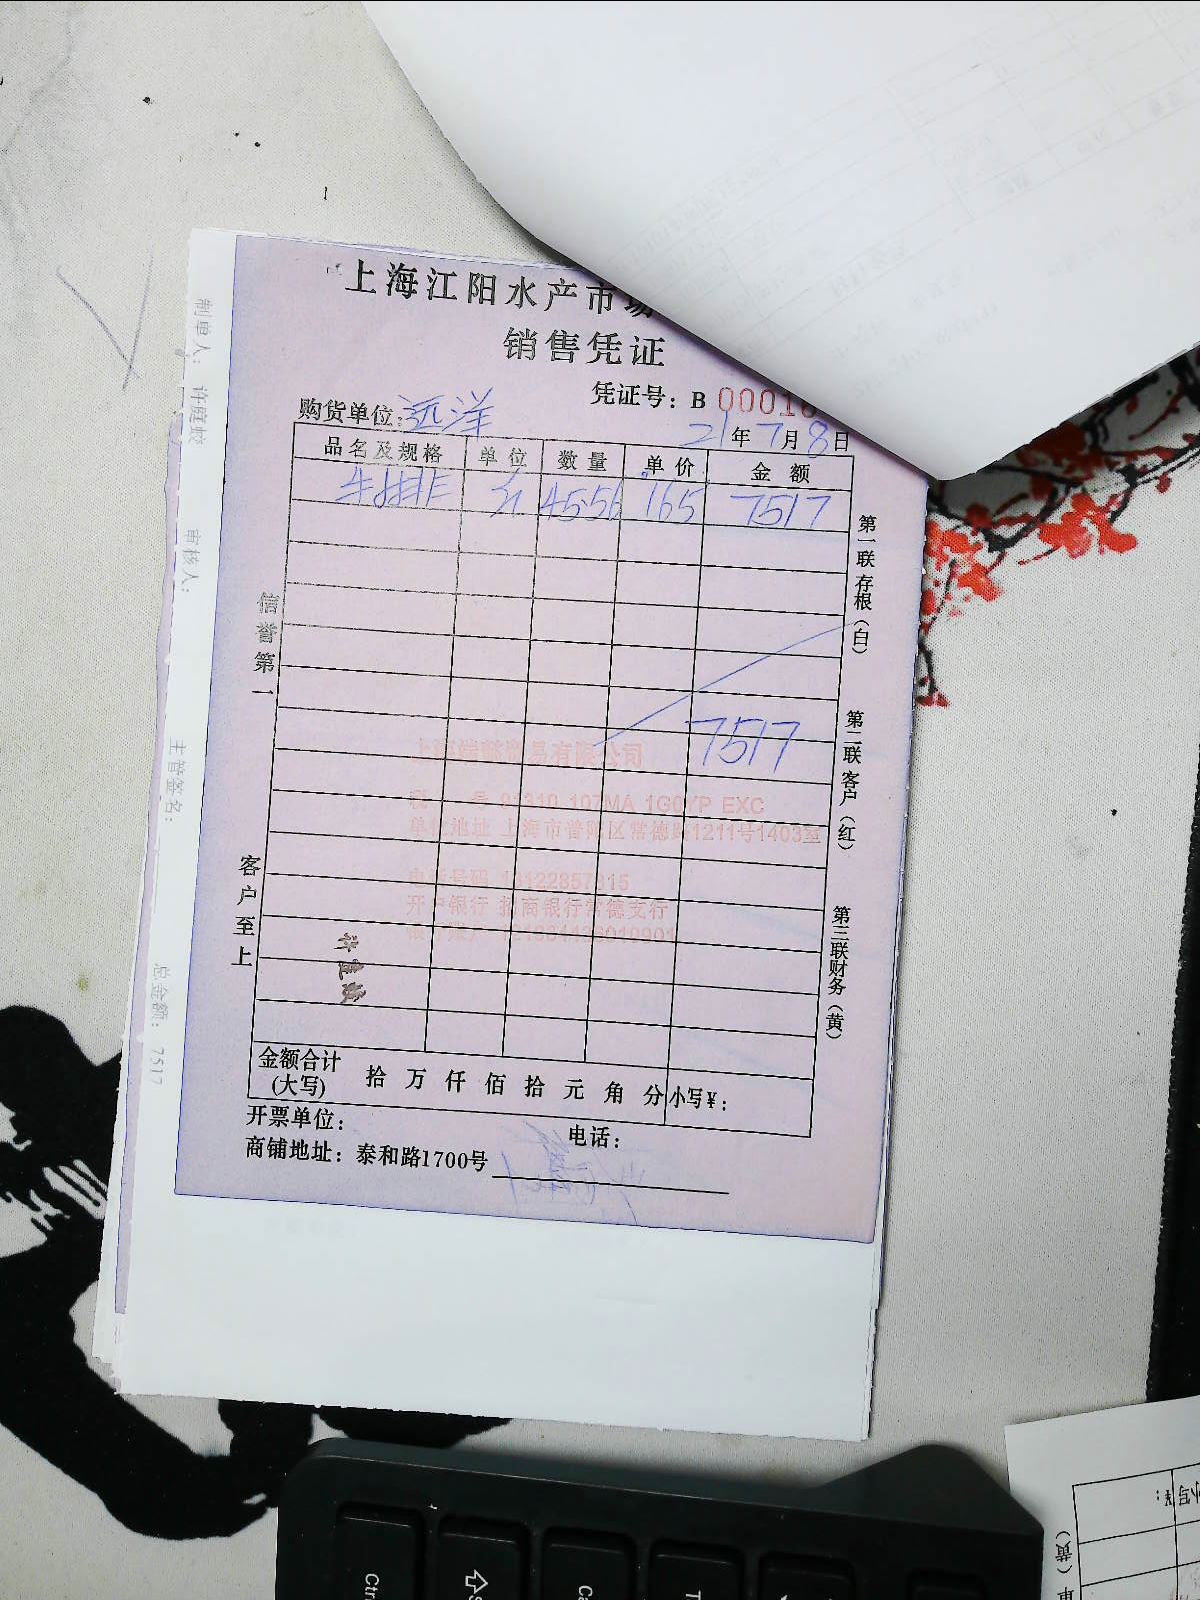 上海江阳水产市场
销售凭证
凭证号：B 00010
购货单位：远洋
21年7月8日
品名及规格 单位 数量 单价 金额
牛排 斤 45.56 165 7517
7517
税 号 91310 107MA 1G0YP EXC
单位地址 上海市普陀区常德路1211号1403室
电话号码
开户银行 招商银行常德支行
许庭蛟
金额合计
(大写) 拾 万 仟 佰 拾 元 角 分 小写￥：
开票单位： 电话：
商铺地址：泰和路1700号
信誉第一
客户至上
第一联存根（白）
第二联客户（红）
第三联财务（黄）
制单人：许庭蛟
审核人：
主管签名：
总金额：7517
小写￥：
（黄）
Ctr